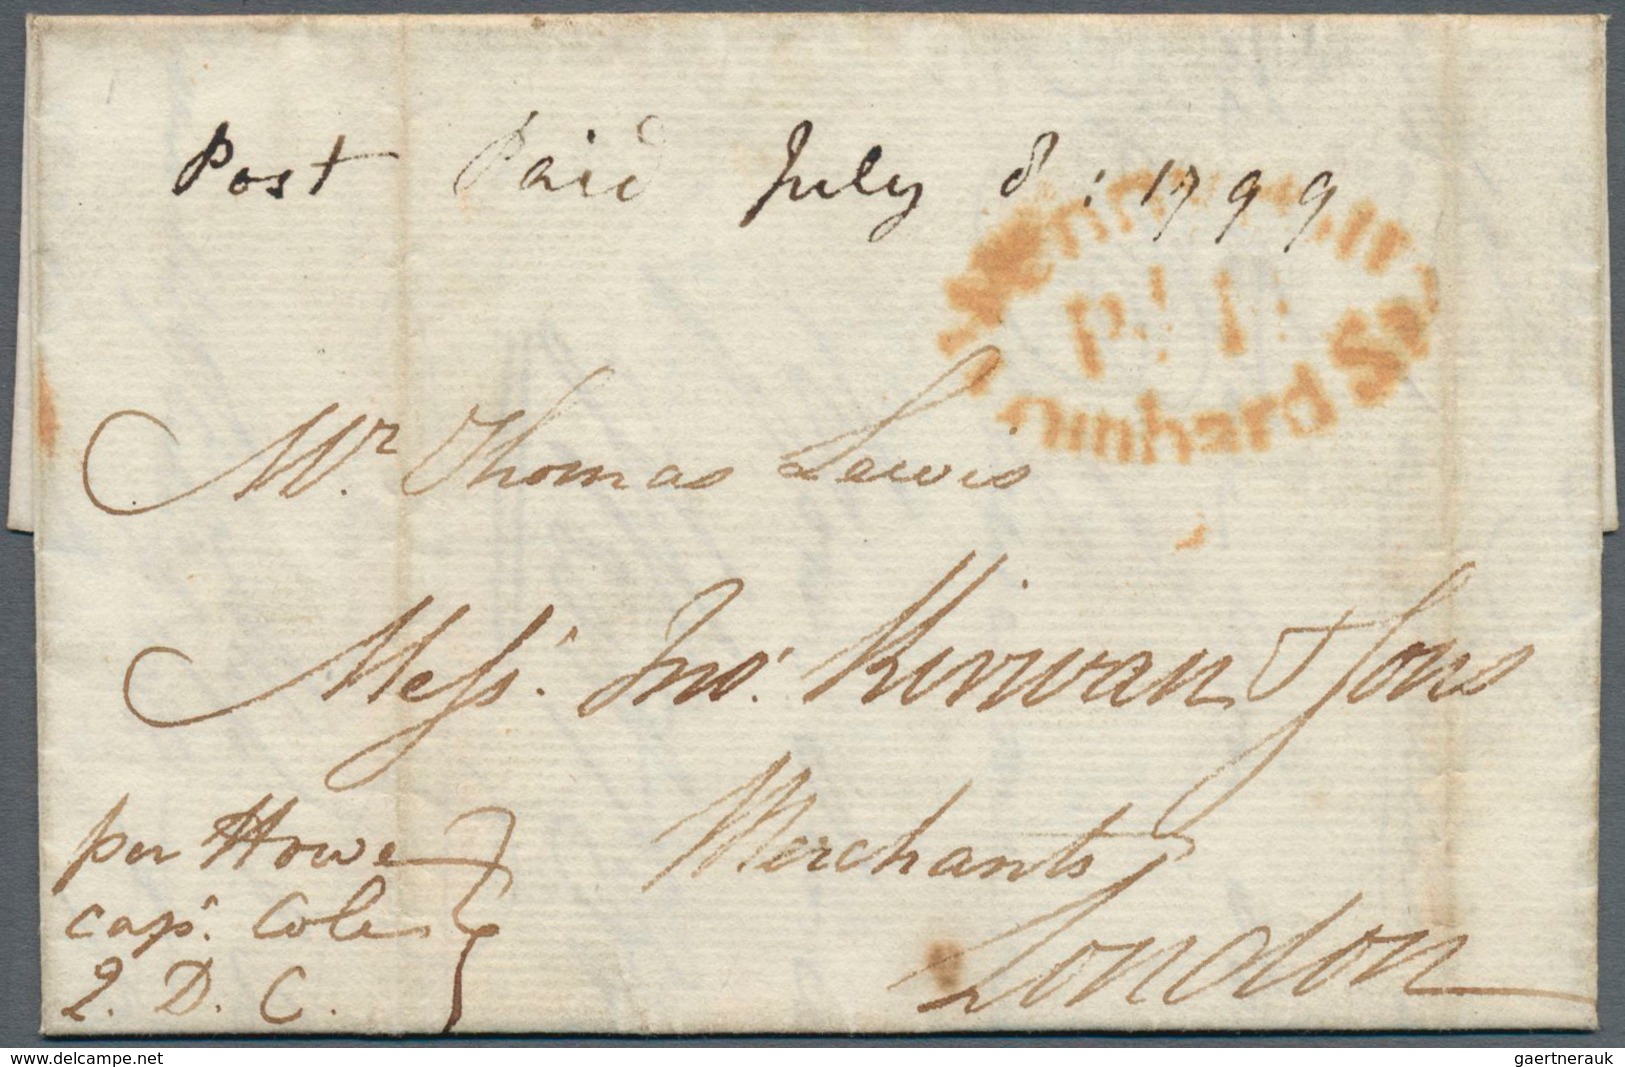 Post Paid July 8: 1799
Pd 1d
Lombard St
Mr. Thomas Lewis
Messrs. Jno. Kirwan & Sons
Merchants
London
per Howe
capt. Cole
2. D. C.
www.delcampe.net
gaertnerauk